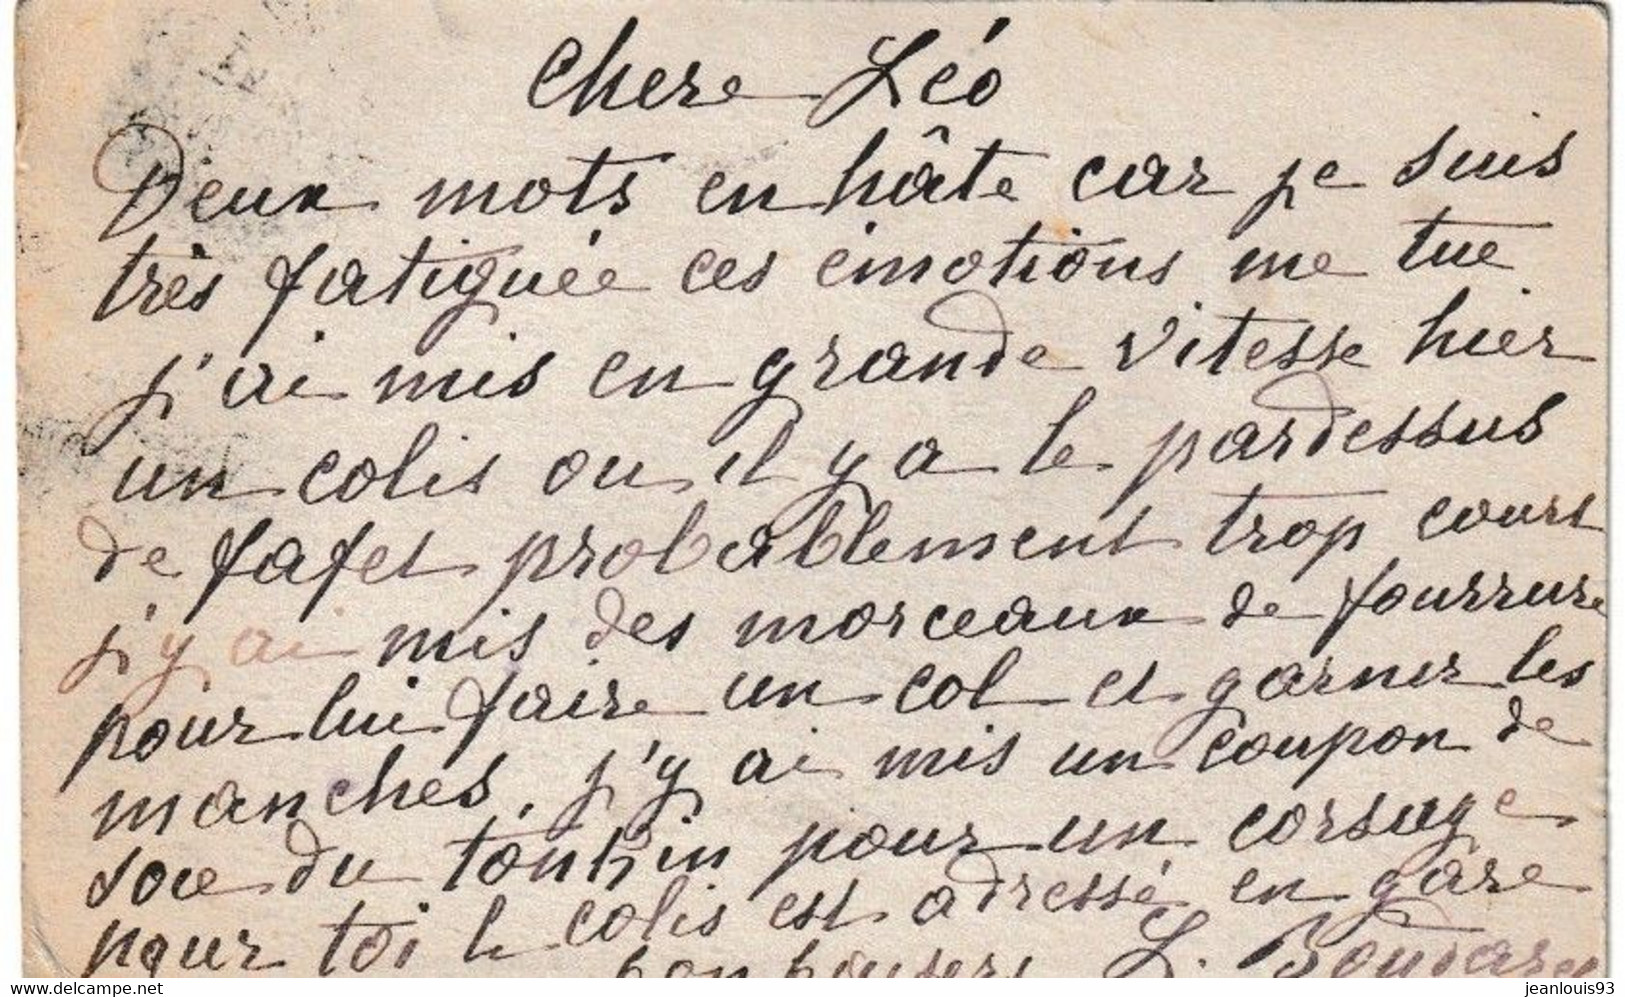 Chere Léo
Deux mots en hâte car je suis
très fatiguée ces émotions me tue
j'ai mis en grande vitesse hier
un colis ou il y a le pardessus
de fafet probablement trop court
j'y ai mis des morceaux de fourrure
pour lui faire un col et garnir les
manches. j'y ai mis un coupon de
soie du tonkin pour un corsage
pour toi le colis est adressé en gare
bon baisers L.
delcampe.net
jeanlouis93